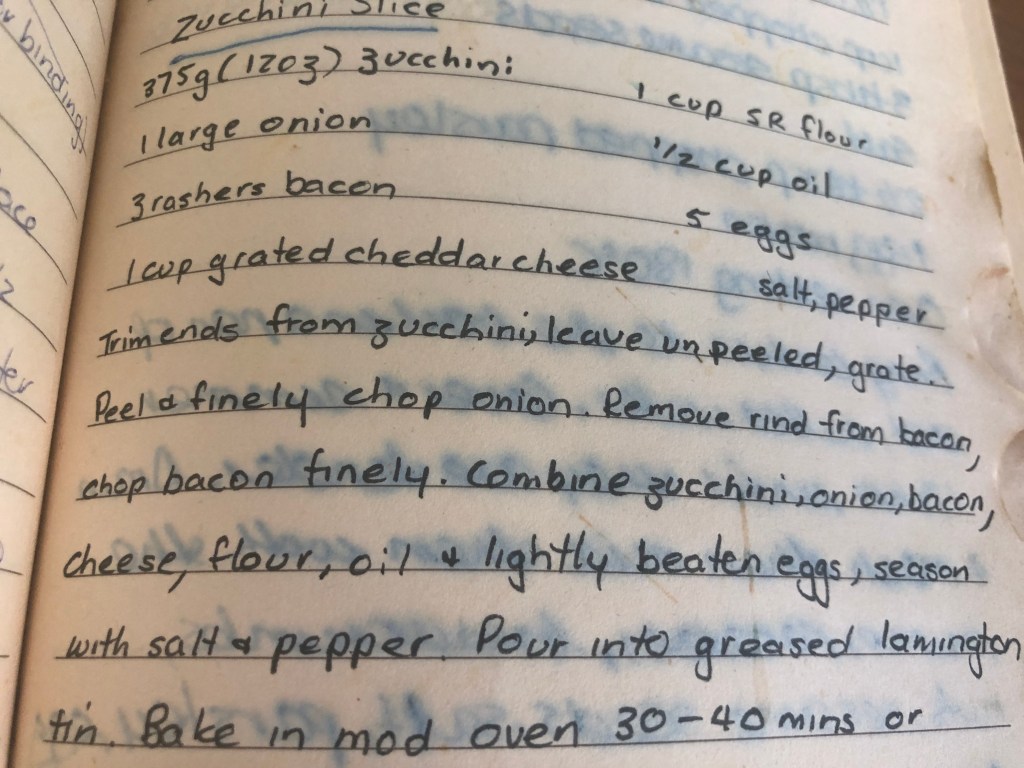 Zucchini Slice
375g (12oz) zucchini
1 cup SR flour
1 large onion
1/2 cup oil
3 rashers bacon
5 eggs
1 cup grated cheddar cheese
salt, pepper
Trim ends from zucchini, leave unpeeled, grate.
Peel & finely chop onion. Remove rind from bacon,
chop bacon finely. Combine zucchini, onion, bacon,
cheese, flour, oil & lightly beaten eggs, season
with salt & pepper. Pour into greased lamington
tin. Bake in mod oven 30-40 mins or
binding)